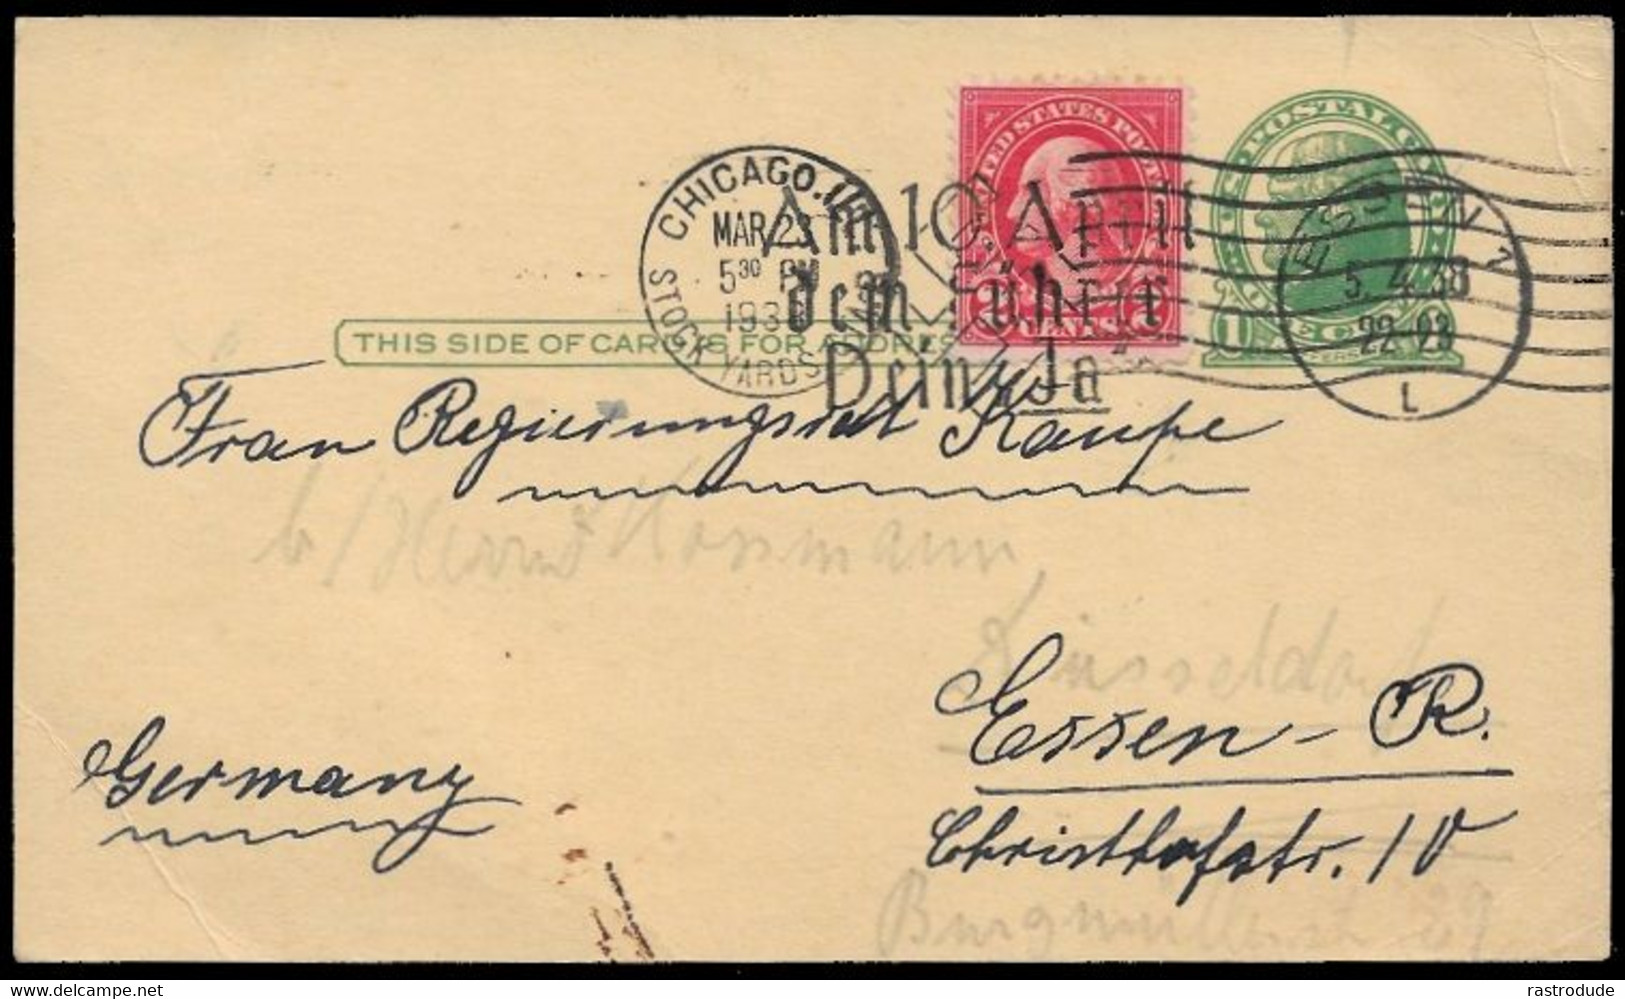 UNITED STATES POSTAGE
2 CENTS 2
U.S. POSTAL CARD
1 ONE CENT 1
JEFFERSON
CHICAGO, ILL.
MAR 23
5 30 PM
1938
STOCK YARDS STA.
Am 10. April
dem Führer
Dein „Ja“
ESSEN 1
5. 4.38
22-23
L
THIS SIDE OF CARD IS FOR ADDRESS
Frau Regierungsrat Kaupe
b/Herrn Kossmann,
Düsseldorf
Essen-R.
Germany
Christhofstr. 10
rastrodude
delcampe.net